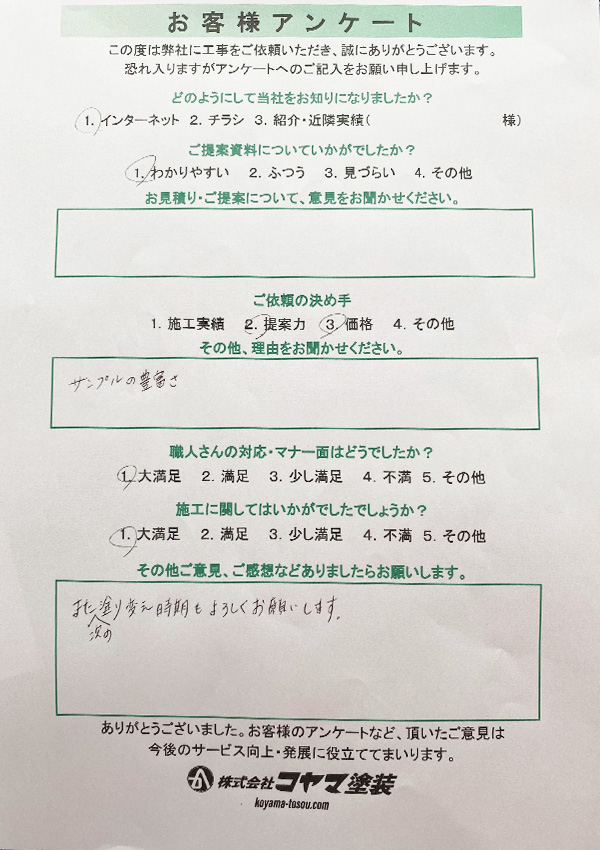 お客様アンケート
この度は弊社に工事をご依頼いただき、誠にありがとうございます。
恐れ入りますがアンケートへのご記入をお願い申し上げます。
どのようにして当社をお知りになりましたか？
1. インターネット 2. チラシ 3. 紹介・近隣実績( 様)
ご提案資料についていかがでしたか？
1. わかりやすい 2. ふつう 3. 見づらい 4. その他
お見積り・ご提案について、意見をお聞かせください。
ご依頼の決め手
1. 施工実績 2. 提案力 3. 価格 4. その他
その他、理由をお聞かせください。
サンプルの豊富さ
職人さんの対応・マナー面はどうでしたか？
1. 大満足 2. 満足 3. 少し満足 4. 不満 5. その他
施工に関してはいかがでしたでしょうか？
1. 大満足 2. 満足 3. 少し満足 4. 不満 5. その他
その他ご意見、ご感想などありましたらお願いします。
また塗り変え時期もよろしくお願いします。
次の
ありがとうございました。お客様のアンケートなど、頂いたご意見は
今後のサービス向上・発展に役立ててまいります。
か 株式会社コヤマ塗装
koyama-tosou.com